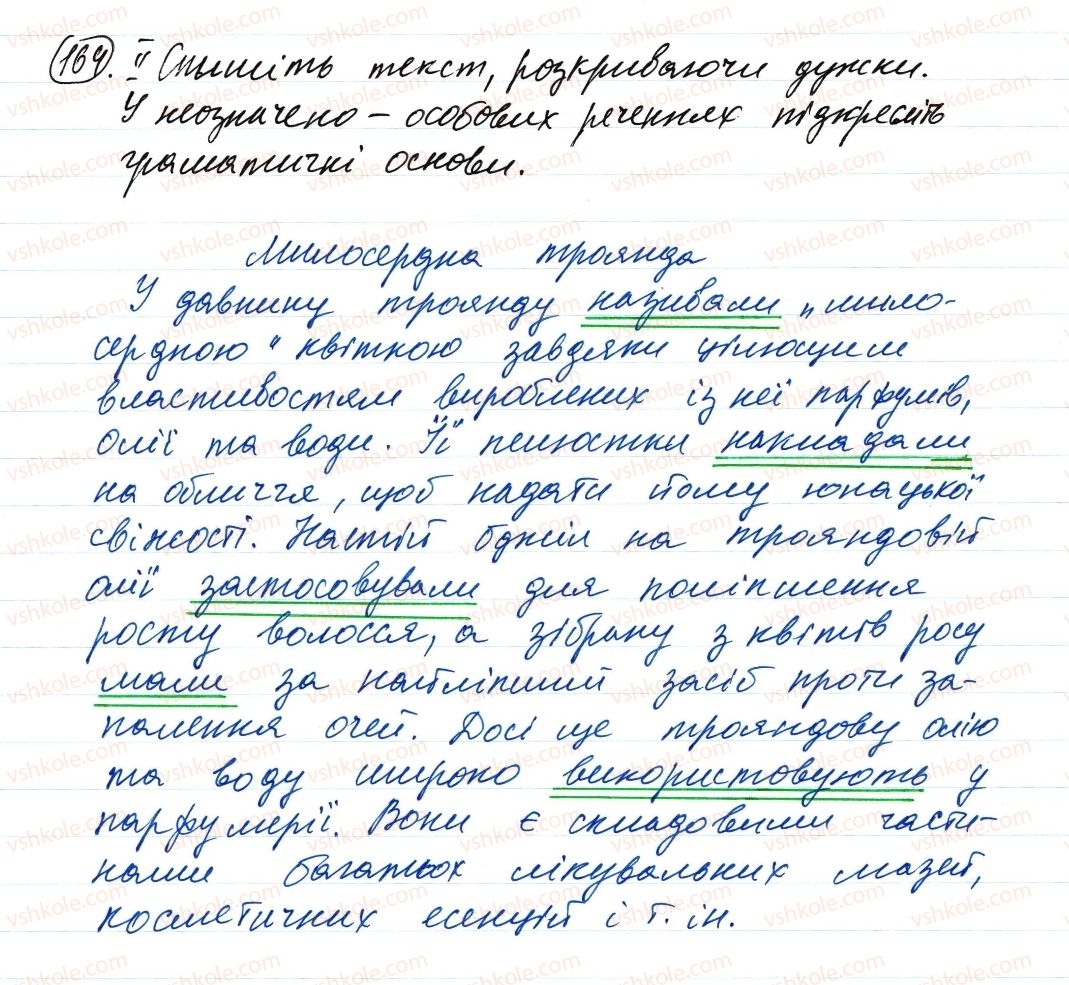 164. II Спишіть текст, розкриваючи дужки.
У неозначено-особових реченнях підкресліть
граматичні основи.
Милосердна троянда
У давнину троянду називали „мило-
сердною" квіткою завдяки цілющим
властивостям вироблених із неї парфумів,
олії та води. Її пелюстки накладали
на обличчя, щоб надати йому юнацької
свіжості. Настій бджіл на трояндовій
олії застосовували для поліпшення
росту волосся, а зібрану з квітів росу
мали за найліпший засіб проти за-
палення очей. Досі ще трояндову олію
та воду широко використовують у
парфумерії. Вони є складовими части-
нами багатьох лікувальних мазей,
косметичних есенцій і т. ін.